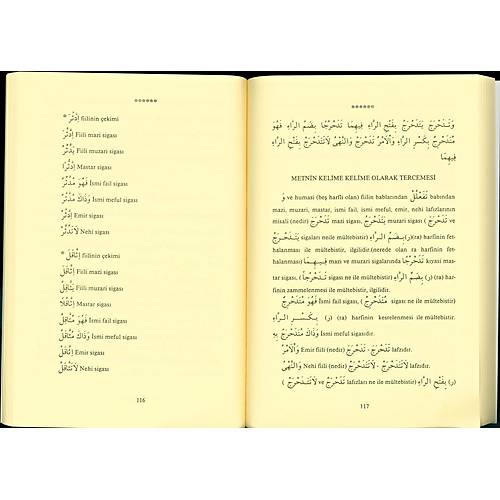 ******
* اِدَّثَّرَ fiilinin çekimi
اِدَّثَّرَ Fiili mazi sigası
يَدَّثَّرُ Fiili muzari sigası
اِدَّثُّرًا Mastar sigası
فَهُوَ مُدَّثِّرٌ İsmi fail sigası
وَذَاكَ مُدَّثَّرٌ İsmi meful sigası
اِدَّثَّرْ Emir sigası
لَاتَدَّثَّرْ Nehi sigası
* اِثَّاقَلَ fiilinin çekimi
اِثَّاقَلَ Fiili mazi sigası
يَثَّاقَلُ Fiili muzari sigası
اِثَّاقُلًا Mastar sigası
فَهُوَ مُثَّاقِلٌ İsmi fail sigası
وَذَاكَ مُثَّاقَلٌ İsmi meful sigası
اِثَّاقَلْ Emir sigası
لَاتَثَّاقَلْ Nehi sigası
116
******
وَتَدَحْرَجَ يَتَدَحْرَجُ بِفَتْحِ الرَّاءِ فِيهِمَا تَدَحْرُجًا بِضَمِّ الرَّاءِ فَهُوَ
مُتَدَحْرِجٌ بِكَسْرِ الرَّاءِ وَالْاَمْرُ تَدَحْرَجْ وَالنَّهْىُ لَاتَتَدَحْرَجْ بِفَتْحِ الرَّاءِ
فِيهِمَا
METNİN KELİME KELİME OLARAK TERCEMESİ
و ve humasi (beş harfli olan) fiilin bablarından تَفَعْلُلْ babından
mazi, muzari, mastar, ismi fail, ismi meful, emir, nehi lafızlarının
misali (nedir) تَدَحْرَجَ mazi sigası, يَتَدَحْرَجُ muzari sigası ( تَدَحْرَجَ ve
يَتَدَحْرَجُ sigaları ne ile mültebistir) بِفَتْحِ الرَّاءِ (ر) (ra) harfinin fet-
halanması ile mültebistir, ilgilidir.(nerede olan ra harfinin fet-
halanması) فِيهِمَا mazi ve muzari sigalarında تَدَحْرُجًا kıyasi mas-
tar sigası, ( تَدَحْرُجًا sigası ne ile mültebistir) بِضَمِّ الرَّاءِ (ر) (ra) har-
finin zammelenmesi ile mültebistir, ilgilidir.
فَهُوَ مُتَدَحْرِجٌ İsmi fail sigası, ( مُتَدَحْرِجٌ sigası ne ile mültebistir)
بِكَسْرِ الرَّاءِ (ر) (ra) harfinin kesrelenmesi ile mültebistir.
وَذَاكَ مُتَدَحْرَجٌ بِهِ İsmi meful sigasıdır.
وَالْاَمْرُ Emir fiili (nedir) تَدَحْرَجْ - تَدَحْرَجْ lafzıdır.
وَالنَّهْىُ Nehi fiili (nedir) لَاتَتَدَحْرَجْ - لَاتَتَدَحْرَجْ lafzıdır.
( تَدَحْرَجْ ve لَاتَتَدَحْرَجْ lafızları ne ile mültebistir) بِفَتْحِ الرَّاءِ (ر)
117